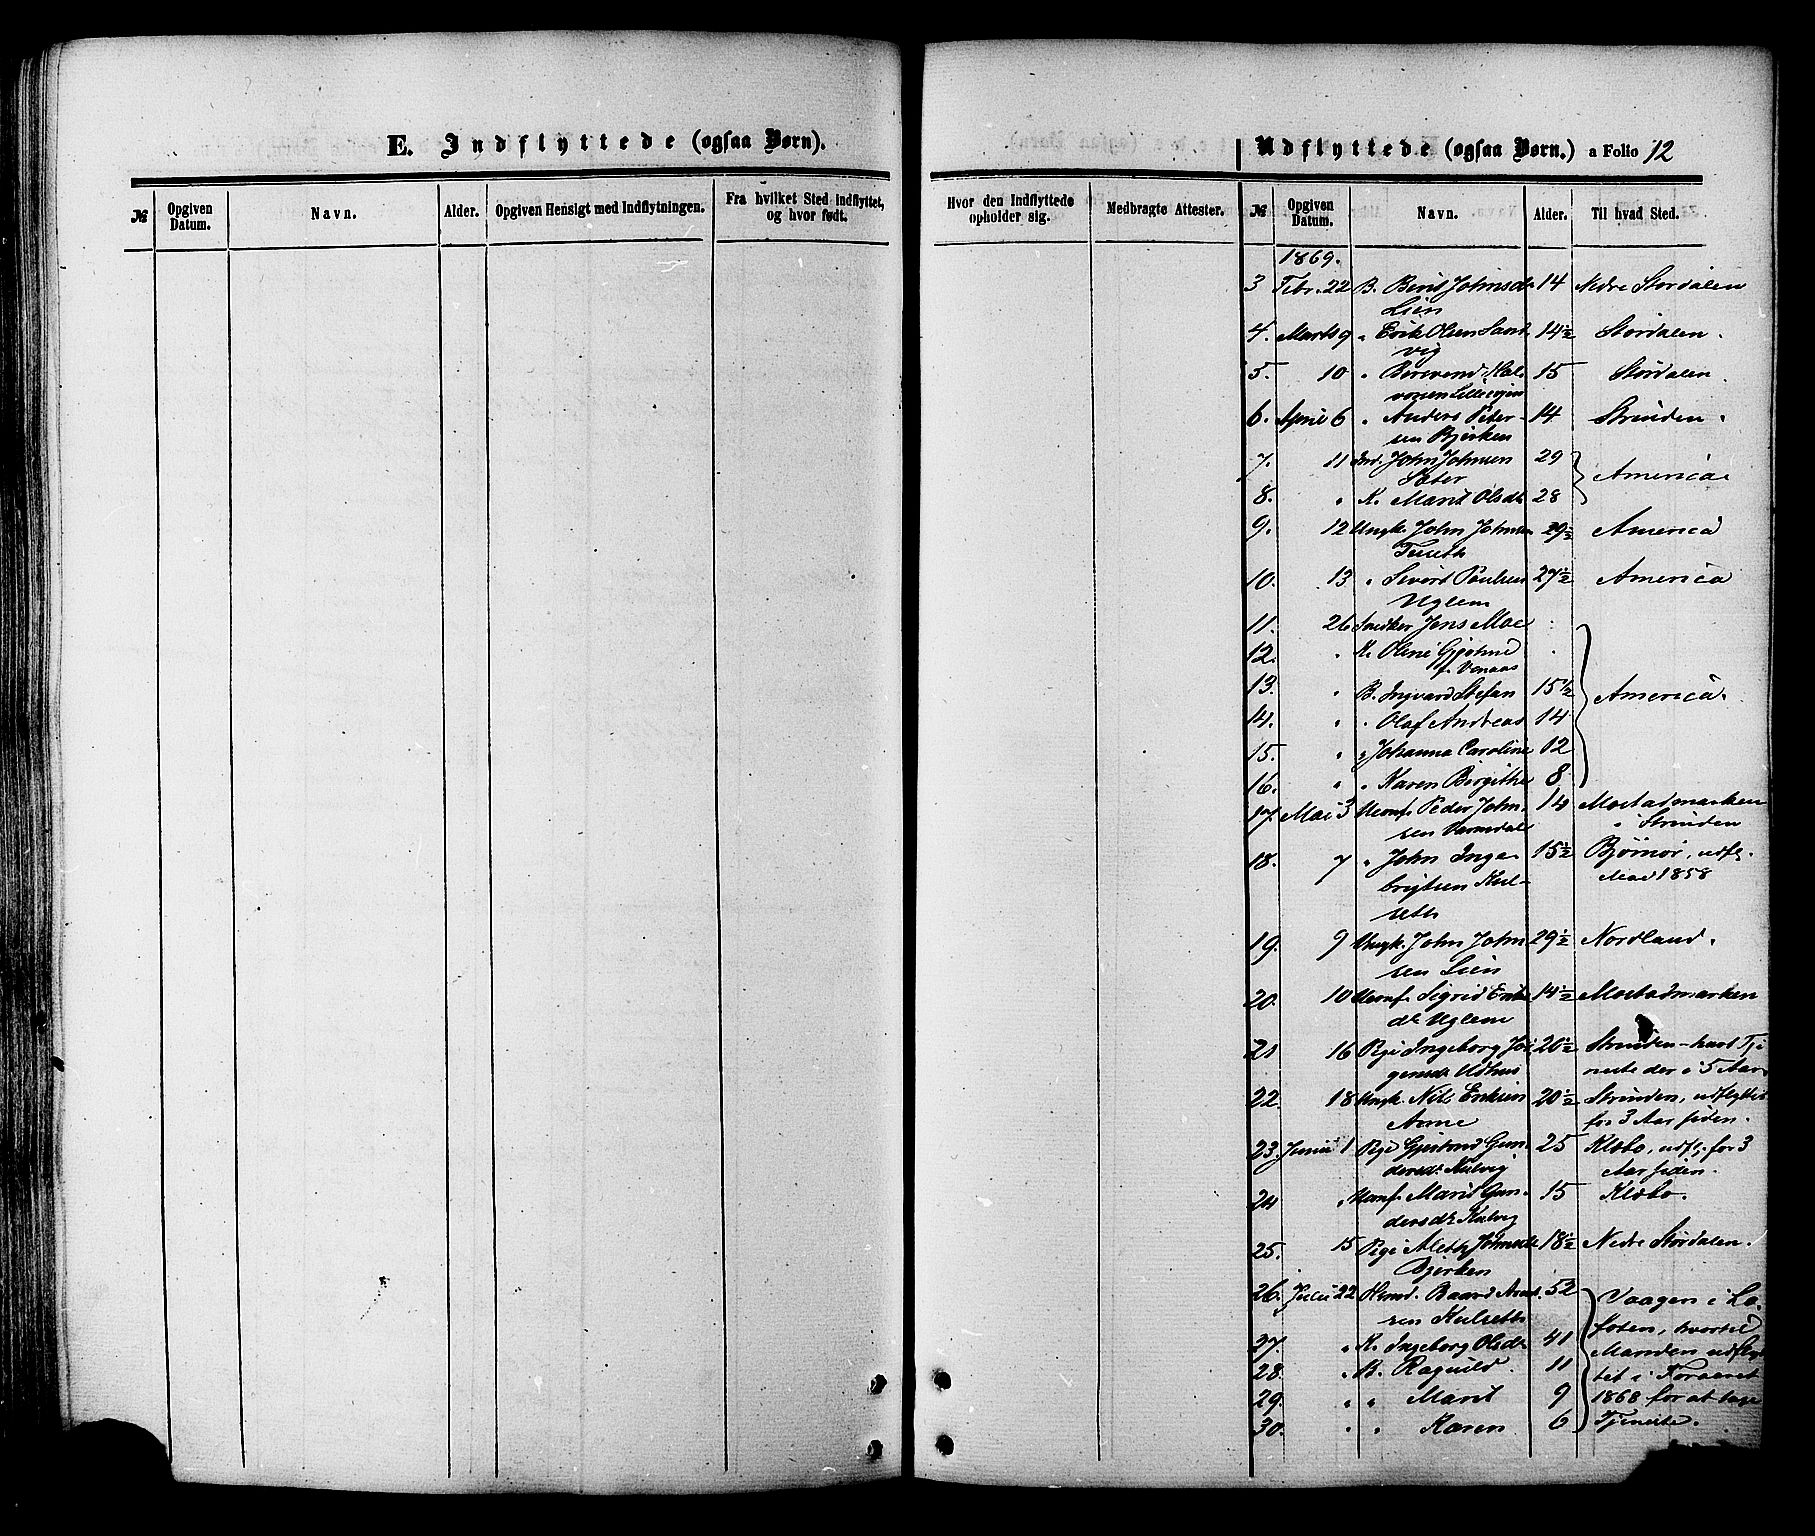 E. Indflyttede (ogsaa Børn).
Udflyttede (ogsaa Børn.) a Folio 12
№ Opgiven Datum. Navn. Alder. Opgiven Hensigt med Indflytningen. Fra hvilket Sted indflyttet, og hvor født.
Hvor den Indflyttede opholder sig. Medbragte Attester. № Opgiven Datum. Navn. Alder. Til hvad Sted.
1869.
3 Febr. 22 B. Berit Johnsdr 14 Nedre Stordalen
Lien
4. Marts 9 " Erik Olsen Sand 14½ Stordalen.
vig
5. 10 " Hal- 15 Stordalen
vorsen
6. April 6 " Anders Peter- 14 Strinden.
sen Bjerken
7. 11 Ind. John Johnsen 29
Sæter
America
8. " K. Marit Olsdr 28
9. 12 Ungk. John Johnsen 29½ America
10. 13 " Sivert Paulsen 27½ America
Uglem
11. 26 Snedker Jens Moe
12. " K. Oline Gjøthne
f. Venaas
13. " B. Ingvard Stefan 15½ America.
14. " " Olaf Andreas 14
15. " " Johanna Caroline 12
16. " " Karen Birgithe 8
17. Mai 3 Uconf. Peder John- 14 Mostadmarken
sen i Strinden
18. 7 " John Inge- 15½ Bjørnør, udfl.
brigtsen Kul- Mai 1858
seth
19. 9 Ungk. John John 29½ Nordland.
sen Lien
20. 10 Uconf. Sigrid Eriks 14½ Mostadmarken
dr Uglem
21 16 Pige Ingeborg Jør 20½ Strinden - havt Tje
gensdr Udhus neste der i 5 Aar
22 18 Ungk. Nils Eriksen 20½ Strinden, udflyttet
Aune for 3 Aar siden.
23. Juni 1 Pige Gjertrud Gun- 25 Klæbo, udfl. for 3
dersdr Kulvig Aar siden.
24 " Uconf. Marit Gun- 15 Klæbo.
dersdr Kulvig
25. 15 Pige Aleth Johnsdr 18½ Nedre Stordalen.
Bjerken
26. Juli 22 Hmd. Baard And. 52 Vaagen i Lo-
sen Kulseth foten, hvortil
27. " K. Ingeborg Olsdr 41 Manden udflyt
28. " B. Ragnild 11 tet i Foraaret
29. " " Marit 9 1868 for at tage
30. " " Karen 6 Tjeneste.